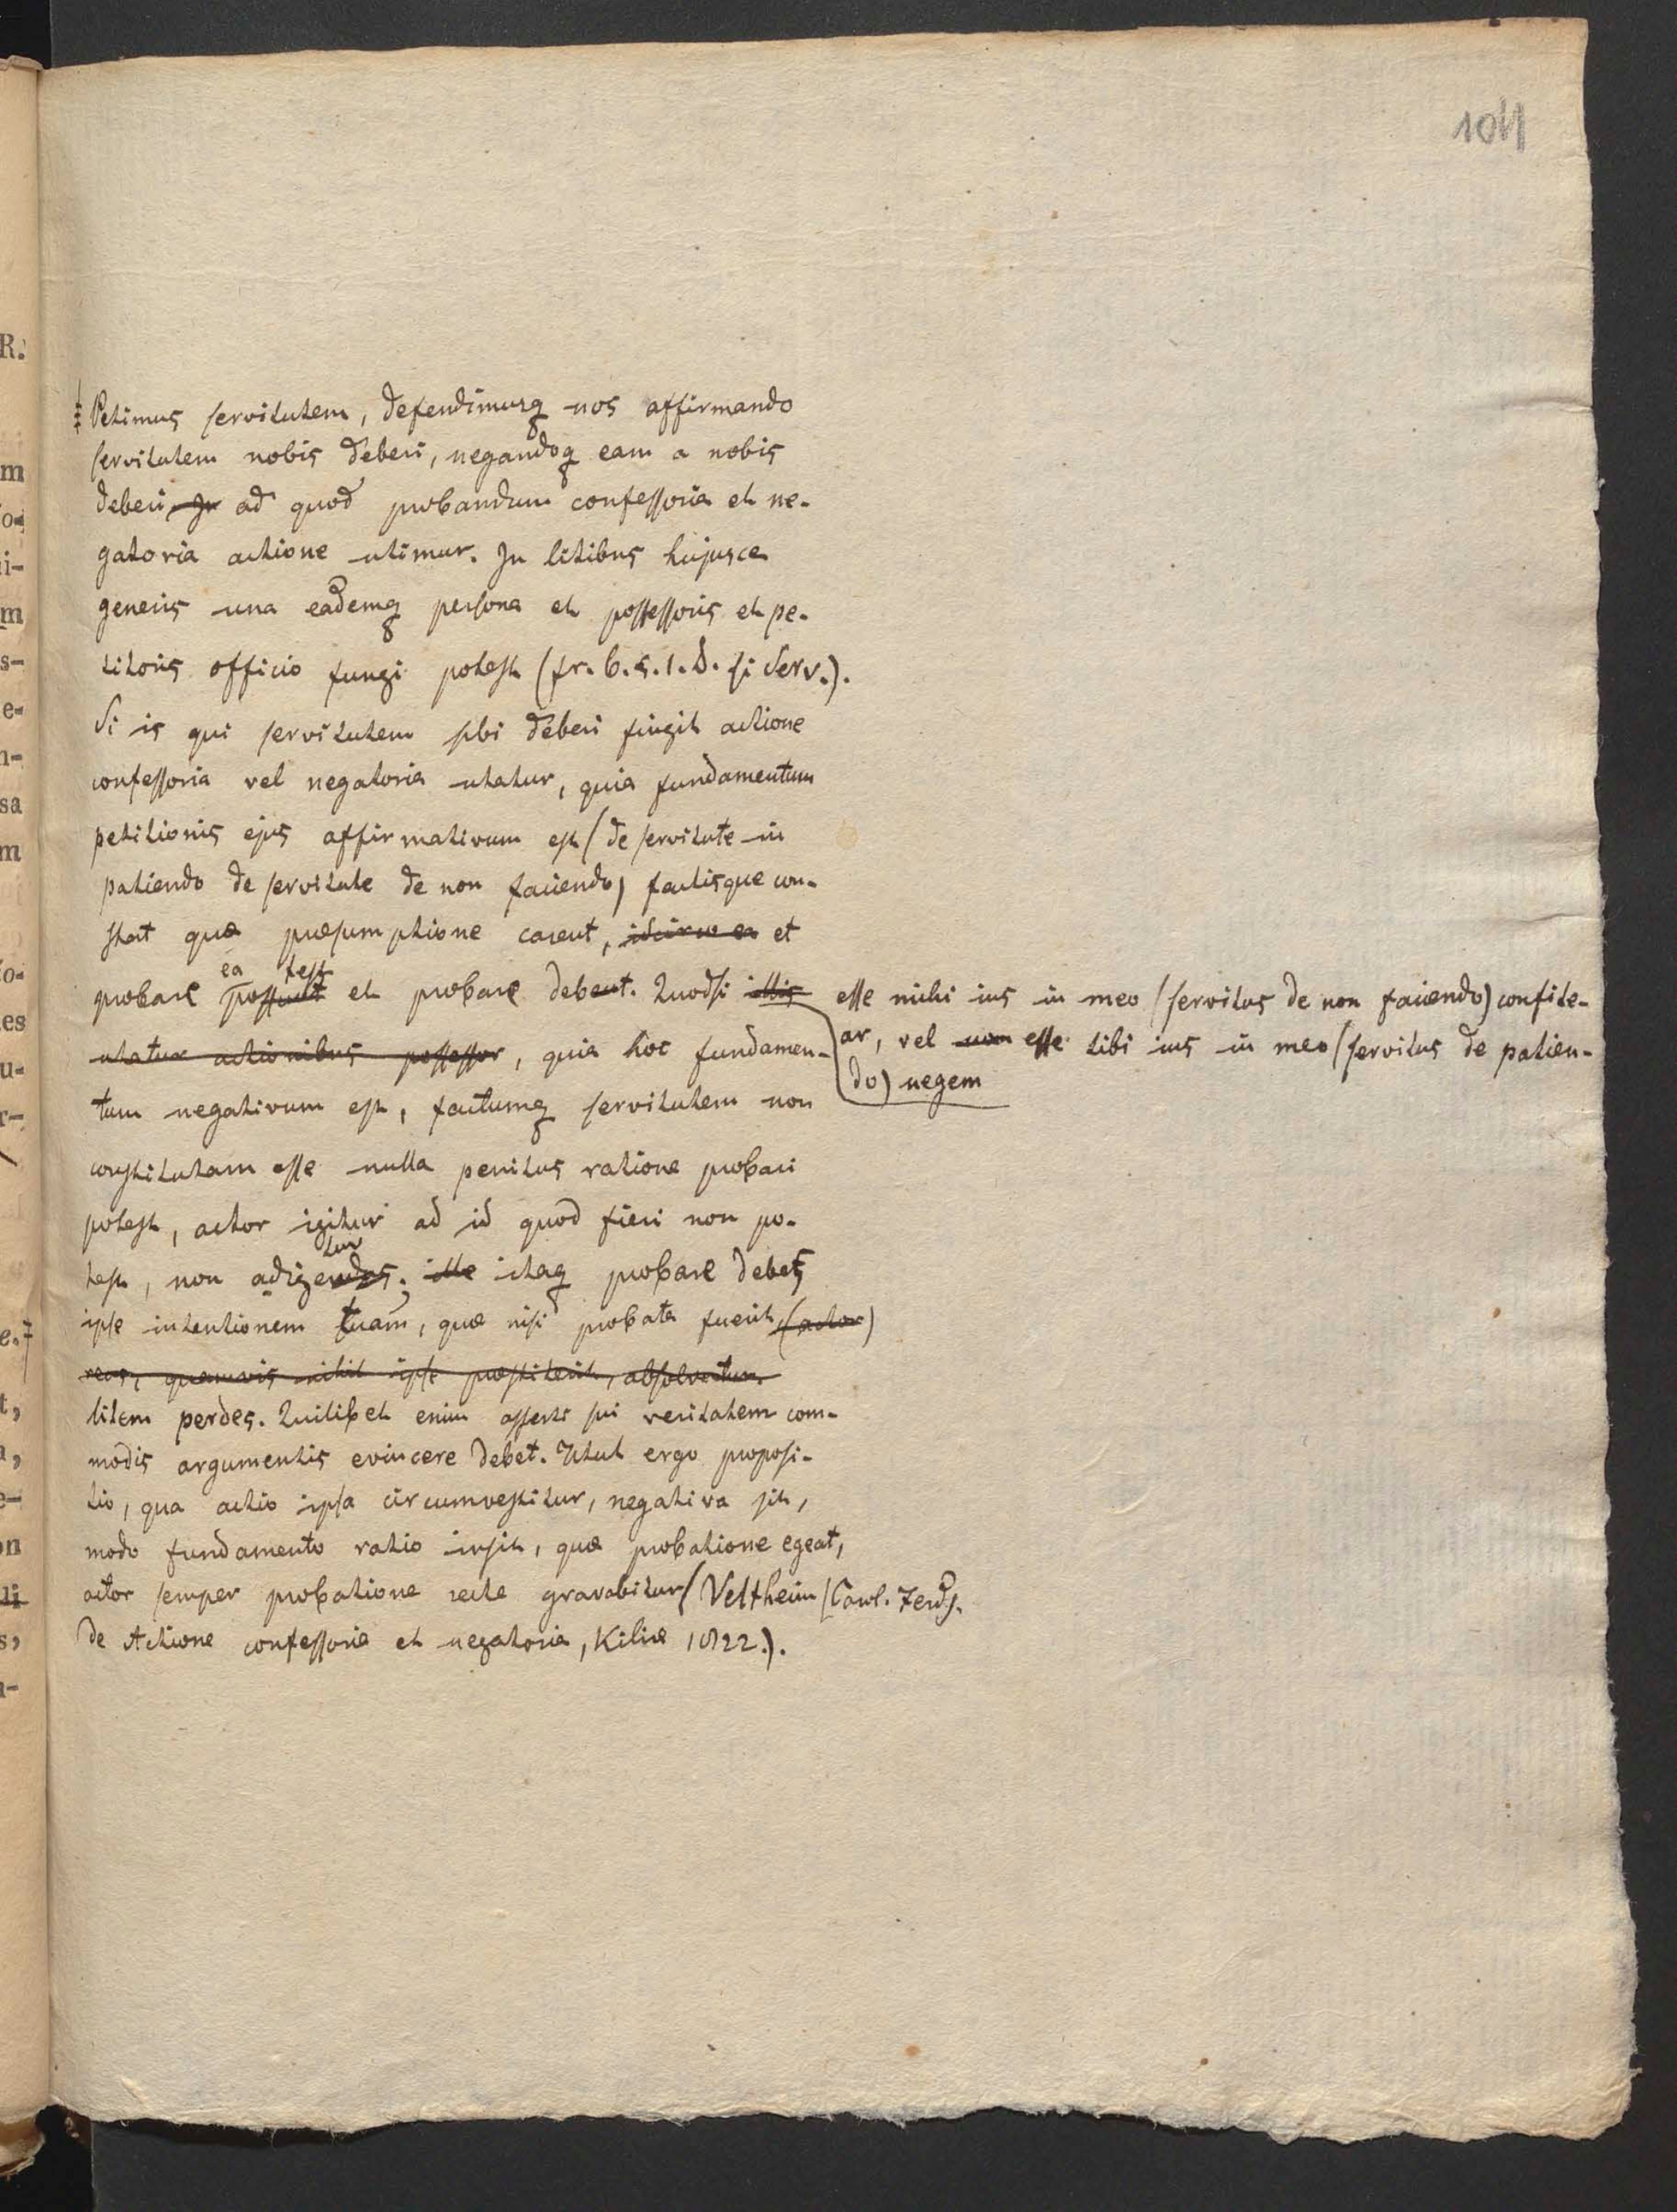 104
‡ Petimus servitutem, defendimusq nos affirmando
servitutem nobis deberi, negandoq eam a nobis
deberi, In ad quod probandum confessoria et ne-
gatoria actione utimur. In litibus hujusce
generis una eademq persona et possessoris et pe-
titoris officio fungi potest (fr. 6. §. 1. D. si Serv.).
Si is qui servitutem sibi deberi fingit actione
confessoria vel negatoria utatur, quia fundamentum
petitionis ejus affirmativum est (de servitute in
patiendo de servitute de non faciendo) factisque con-
stat quæ præsumptione carent, idcirco ea et
ea test
probare possunt et probare debent. Quodsi illis
utatur actionibus possessor, quia hoc fundamen-
esse mihi ius in meo (servitus de non faciendo) confite-
ar, vel non esse tibi ius in meo (servitus de patien-
do) negem
tum negativum est, factumq servitutem non
constitutam esse nulla penitus ratione probari
potest, actor igitur ad id quod fieri non po-
tur
test, non adigendus; ille itaq probare debes
ipse intentionem tuam, quæ nisi probata fuerit (actor)
reus, quamvis nihil ipse præstiterit, absolvetur.
litem perdes. Quilibet enim asserti sui veritatem com-
modis argumentis evincere debet. Utut ergo proposi-
tio, qua actio ipsa circumvestitur, negativa sit,
modo fundamento ratio insit, quæ probatione egeat,
actor semper probatione recte gravabitur (Veltheim (Carol. Ferd).
de Actione confessoria et negatoria, Kiliæ 1822.).
R.
m
o-
i-
m
s-
e-
n-
sa
m
o-
es
u-
r-
e. ‡
t,
a,
e-
on
li
s,